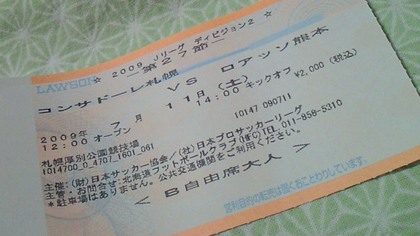 LAWSON ☆ 2009 Jリーグ ディビジョン2 ☆
ー第27節ー
コンサドーレ札幌 VS ロアッソ熊本
2009年 7月 11日(土)
12:00 オープン 14:00 キックオフ ¥2,000(税込)
札幌厚別公園競技場 10147 090711
1014700_0_4707_1601_061
主催:(財)日本サッカー協会/(社)日本プロサッカーリーグ
主管・お問合せ:北海道フットボールクラブ(HFC)TEL.011-858-5310
*駐車場はありません。公共交通機関をご利用ください。
<B自由席大人>
営利目的の転売は固くおことわりしています。